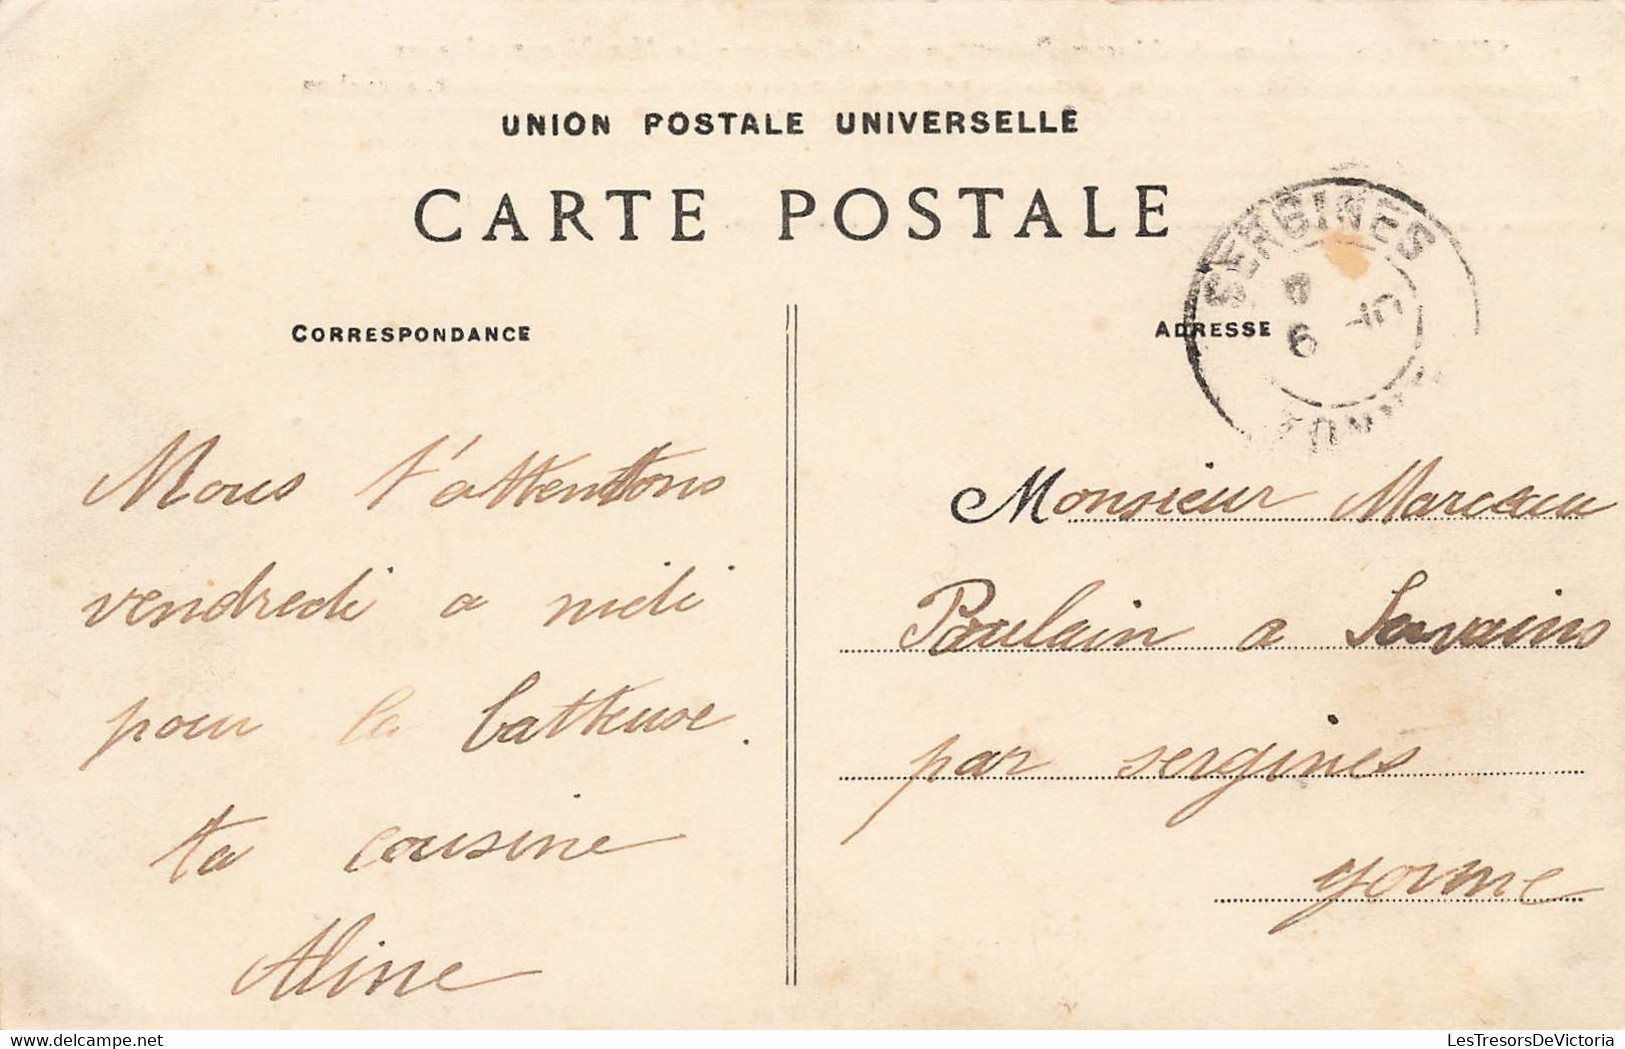 UNION POSTALE UNIVERSELLE
CARTE POSTALE
CORRESPONDANCE
ADRESSE
SERGINES
6
YONNE
Nous t'attentons
vendredi a midi
pour la batteuse.
ta cousine
Aline
Monsieur Marceau
Poulain a
par sergines
yonne
LesTresorsDeVictoria
delcampe.net